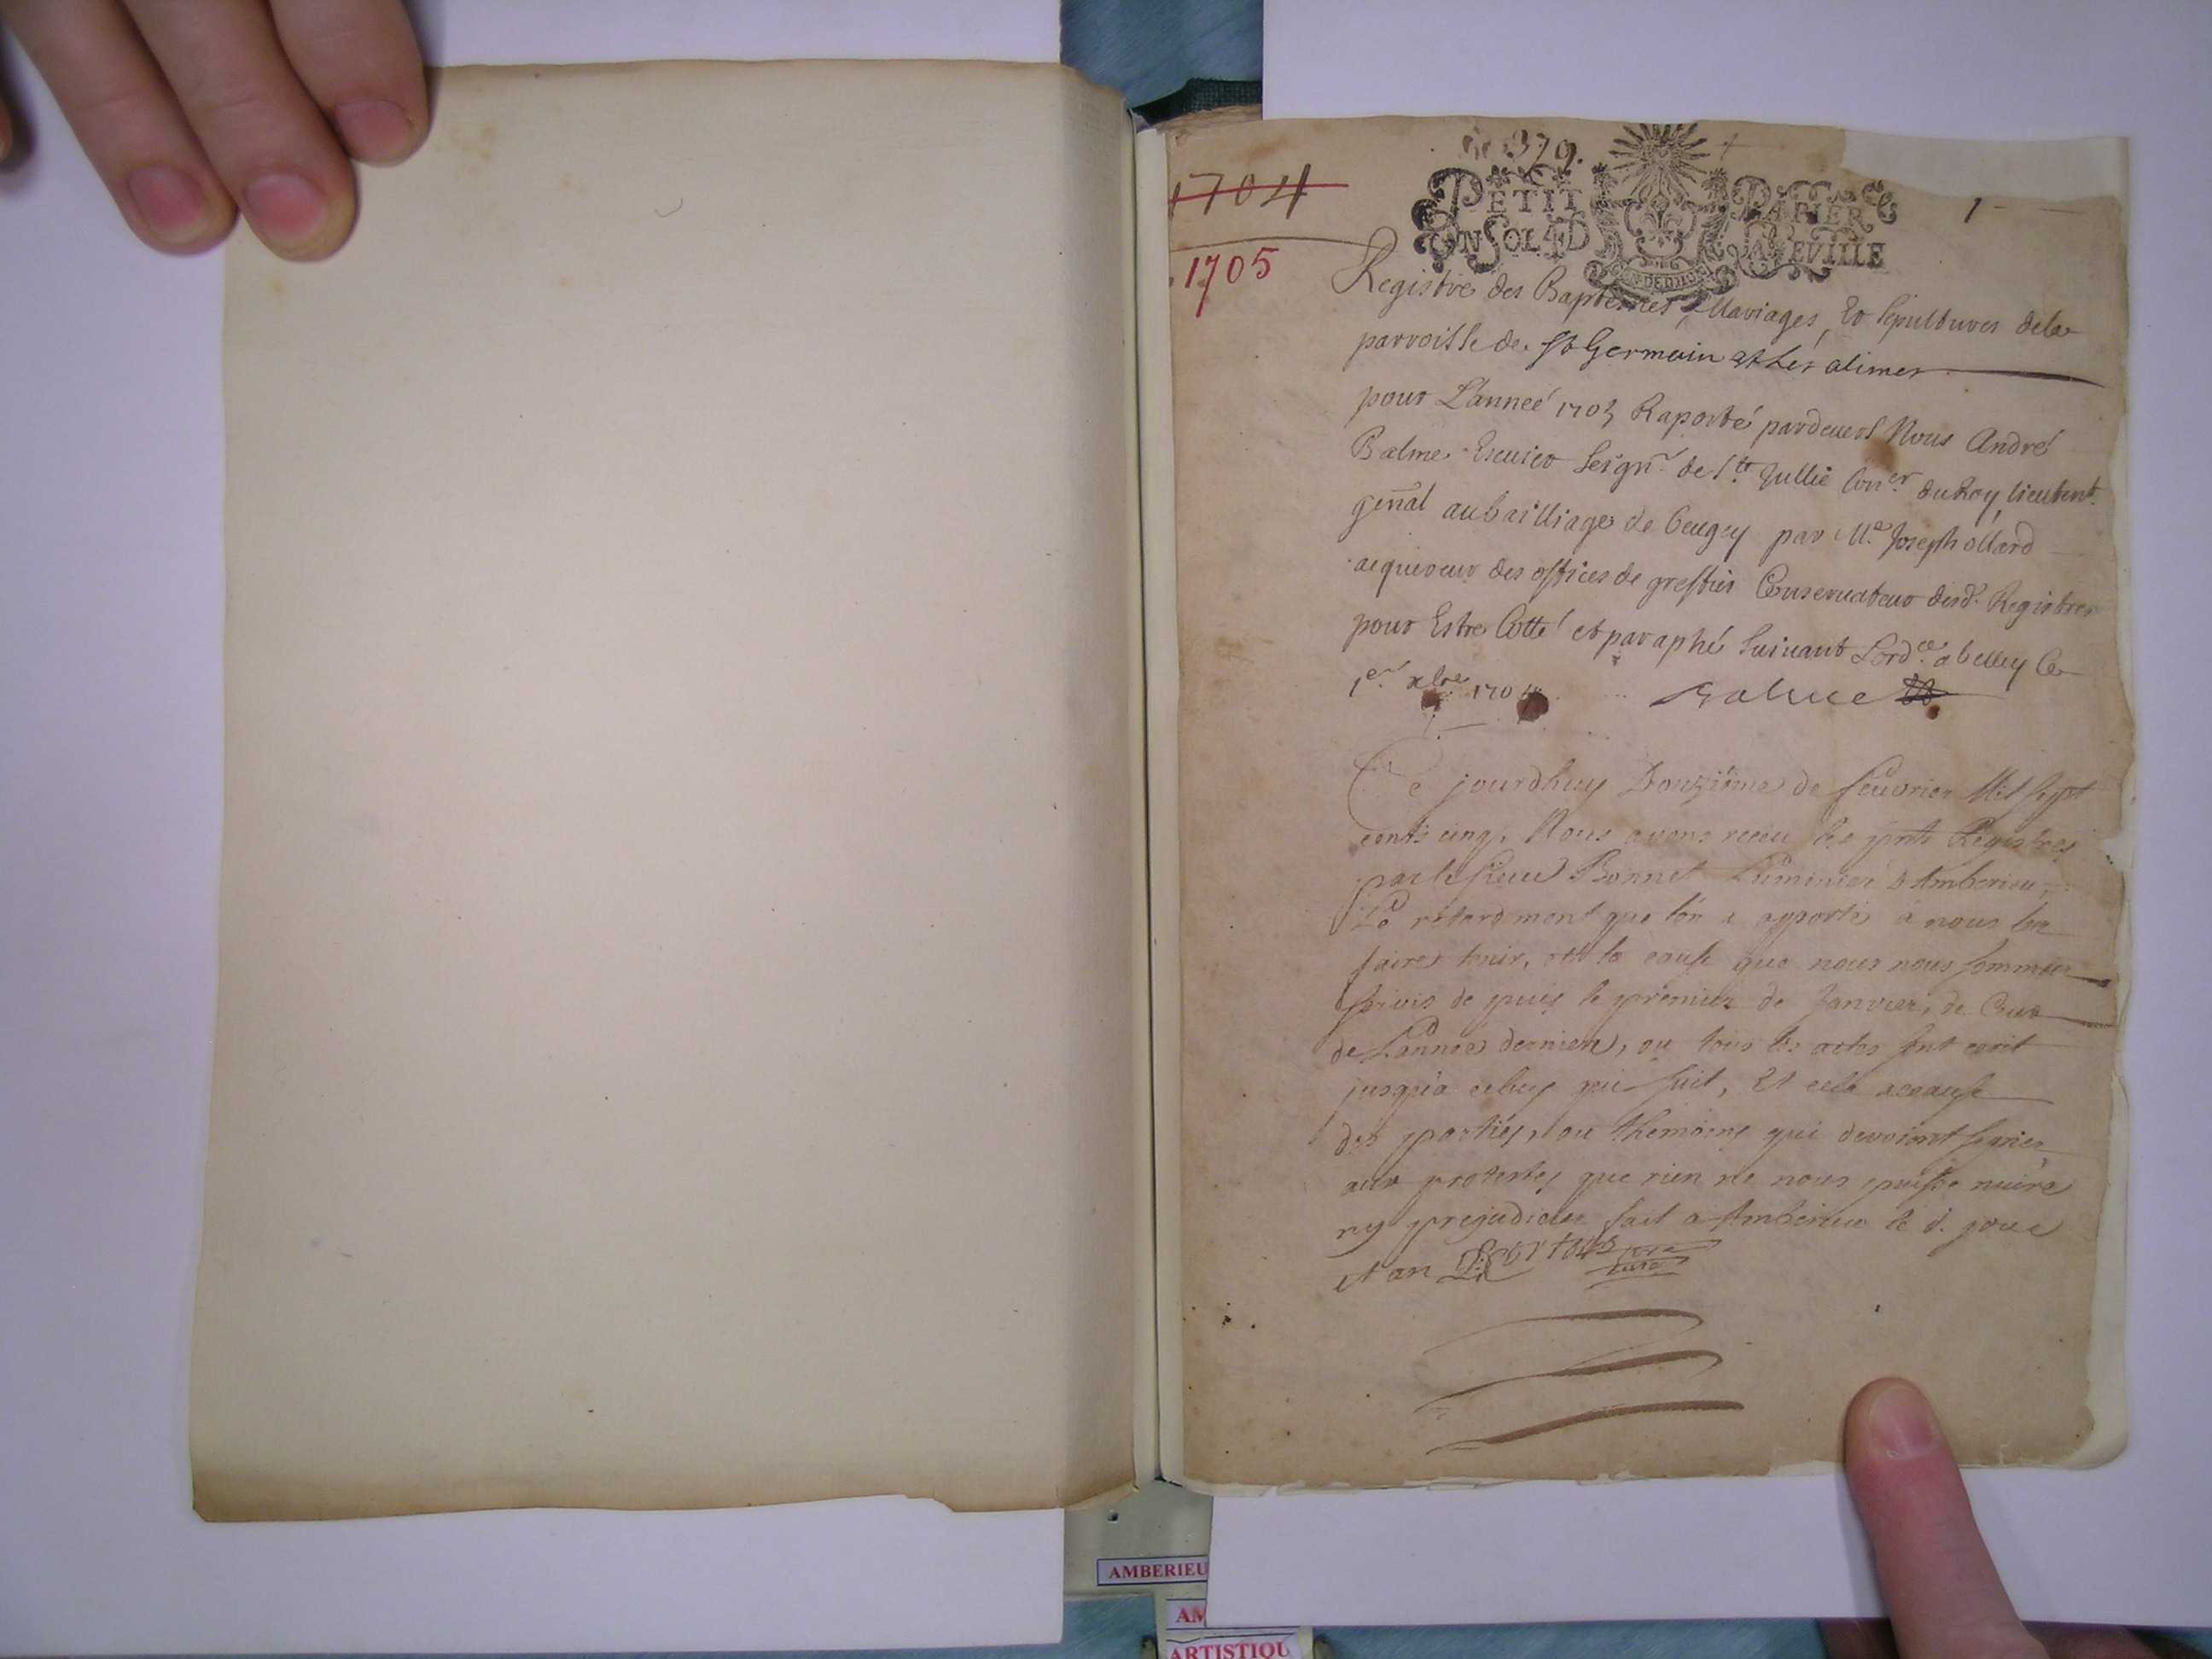 379.
1704
1705
1
PETIT PAPIER
UN SOL 4 D LA FEVILLE
Registre des Baptemes, Mariages, et sepultures dela
parroisse de. St Germain et Les alimes
pour L'anneé 1705 Raporté pardeuers Nous André
Balme Escuier Seignr. de Ste Jullie Coner. du Roy lieutent.
genãl au bailliage de beugey par Me. Joseph ollard
acquereur des offices de greffier Conseruateur desd. Registres
pour Estre Cotté et paraphé suiuant Lordce. a belley Ce
1er xbre 1704 Balme
Ce jourdhuy Douziême de feuvrier Mil sept
cents cinq, Nous avons receu les pnts Registres
par le sieur Bonnet Luminier d'Amberieu,
Le retardment que lon a apporté a nous les
faires tenir, est la cause que nous nous sommes
servis de puis le premier de Janvier, de Ceux
de L'année derniere, ou tous les actes sont ecrit
jusqu'a celuy qui suit, Et cela acause
des parties, ou themoins qui devoient signer,
protestes que rien ne nous puisse nuire
ny prejudicier fait a Amberieu le d. jour
et an curé
AMBERIEU
AM
ARTISTIQU